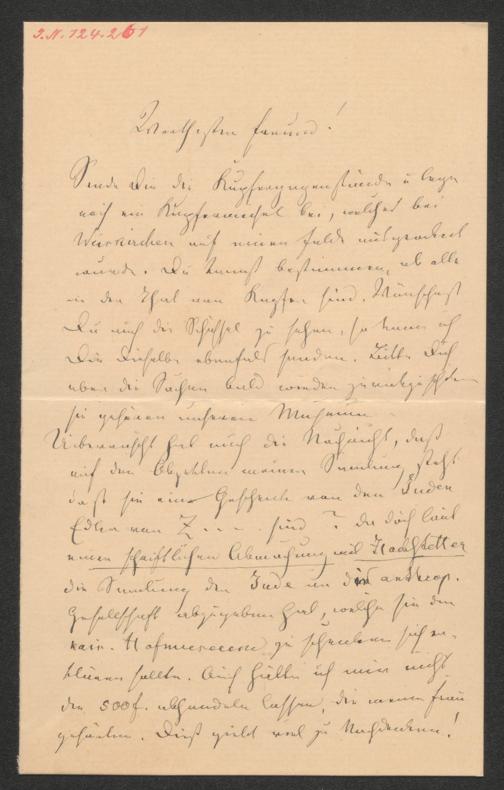 J.N. 124.261
Werthester Freund!
Sende Dir die Kupfergegenstände u lege
noch ein Kupfermeißel bei, welches bei
Weiskirchen auf einem Felde ausgeackert
wurde. Du kannst bestimmen, ob alle
in der That von Kupfer sind. Wünschest
Du auch die Schüssel zu sehen, so kann ich
Dir dieselbe ebenfalls senden. Bitte Dich
aber die Sachen bald wieder zurückzuschicken
sie gehören unserem Museum
Ueberrascht hat mich die Nachricht, daß
auf den Objekten meiner Samlung steht
daß sie eine Geschenk von dem Juden
Edler von Z . . . . sind? da doch laut
einer schriftlichen Abmachung mit Hochstetter
die Samlung der Jude an die antrop.
Gesellschaft abzugeben hat, welche sie dem
kais. Hofmuseum zu schenken sich er-
klären sollte. Auch hätte ich mir nicht
die 500 f. abhandeln lassen, die meiner Frau
gehörten. Dieß giebt viel zu Nachdenken!